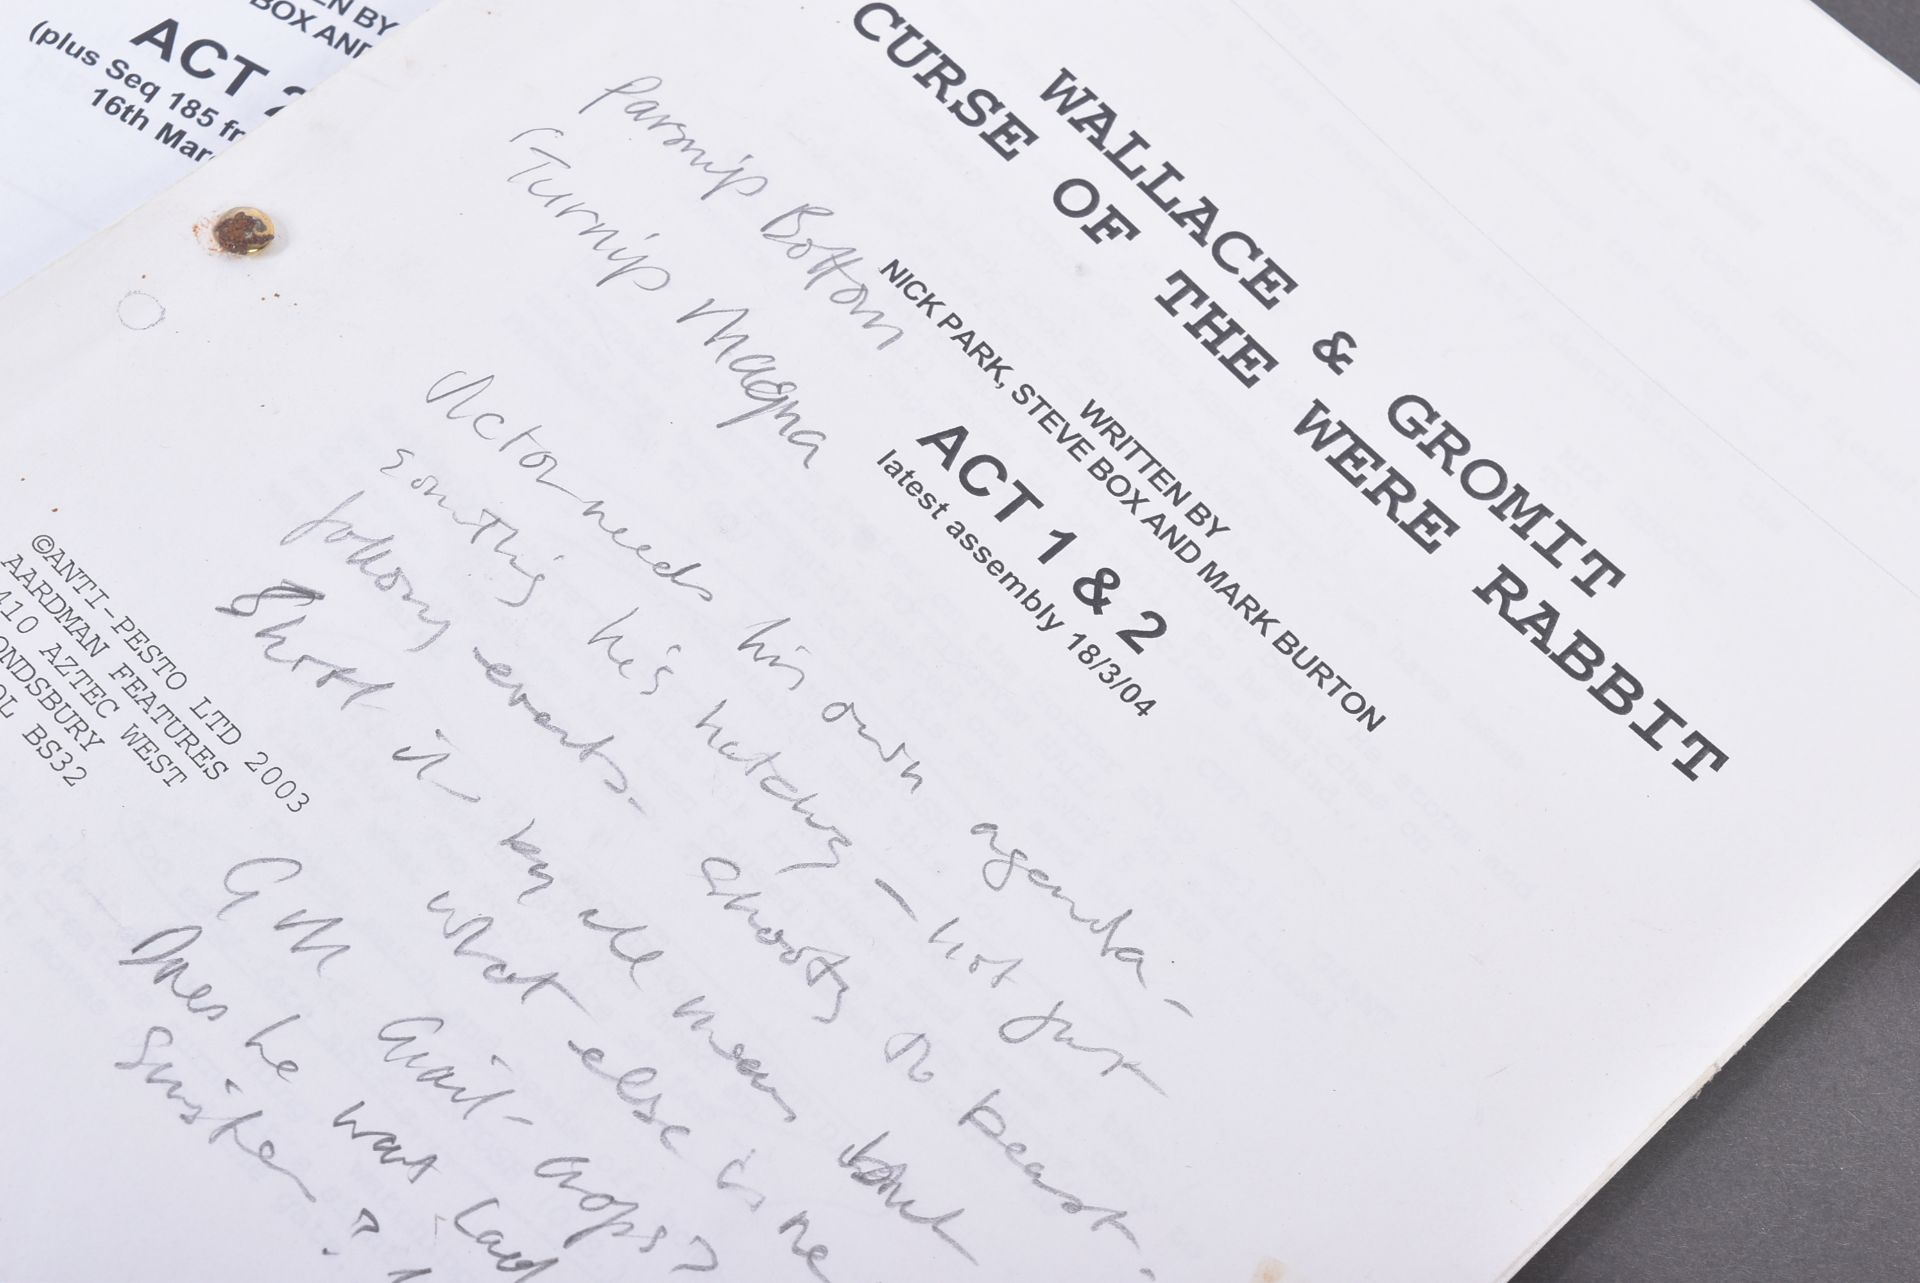 EN BY
BOX AND
ACT 2
(plus Seq 185 fr
16th Mar
WALLACE & GROMIT
CURSE OF THE WERE RABBIT
WRITTEN BY
NICK PARK, STEVE BOX AND MARK BURTON
ACT 1 & 2
latest assembly 18/3/04
Parsnip Bottom
Turnip Magna
Victor needs his own agenda -
something he's hatching - not just
following events. Shooting the beast.
Shoot it by all means
what else is he
GM Crops?
Does he want Lady
Sinister?
©ANTI-PESTO LTD 2003
AARDMAN FEATURES
410 AZTEC WEST
ONDSBURY
OL BS32